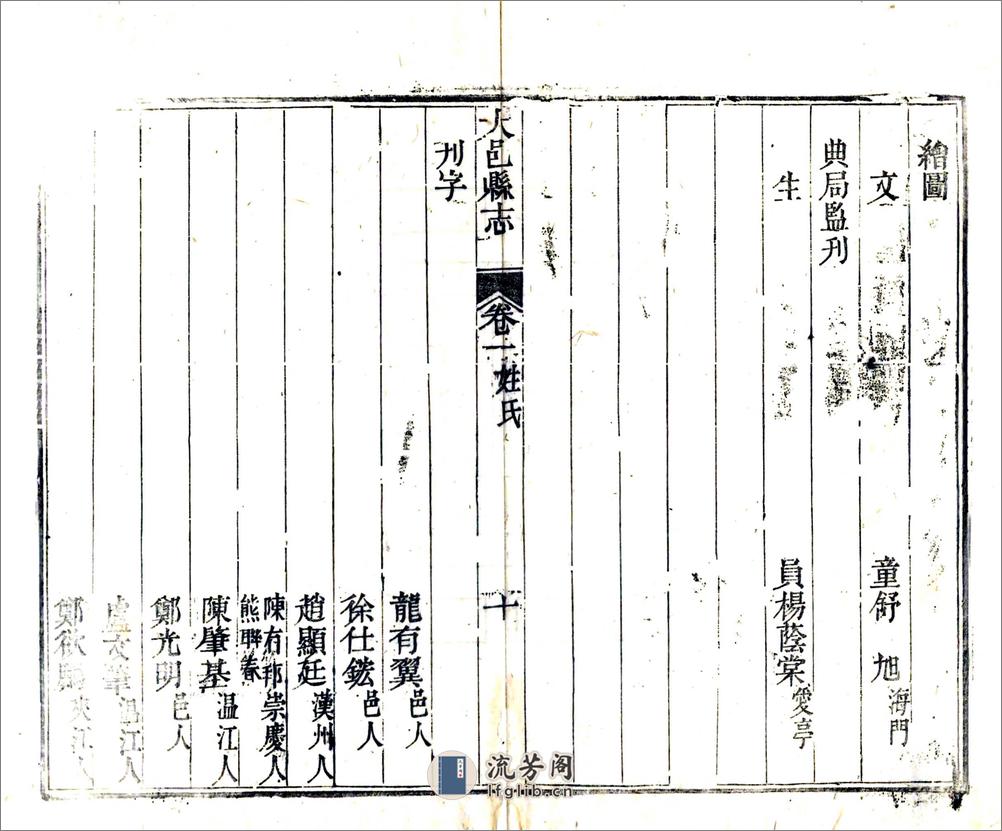 繪圖
文 童舒 旭 海門
典局監刊
生 員楊蔭棠 愛亭
大邑縣志 卷一 姓氏 十
刊字
龍有翼 邑人
徐仕鋐 邑人
趙顯廷 漢州人
陳有邦 崇慶人
熊聯春
陳肇基 温江人
鄭光明 邑人
盧文筆 温江人
鄭欲 江人
流芳阁
lfglib.cn